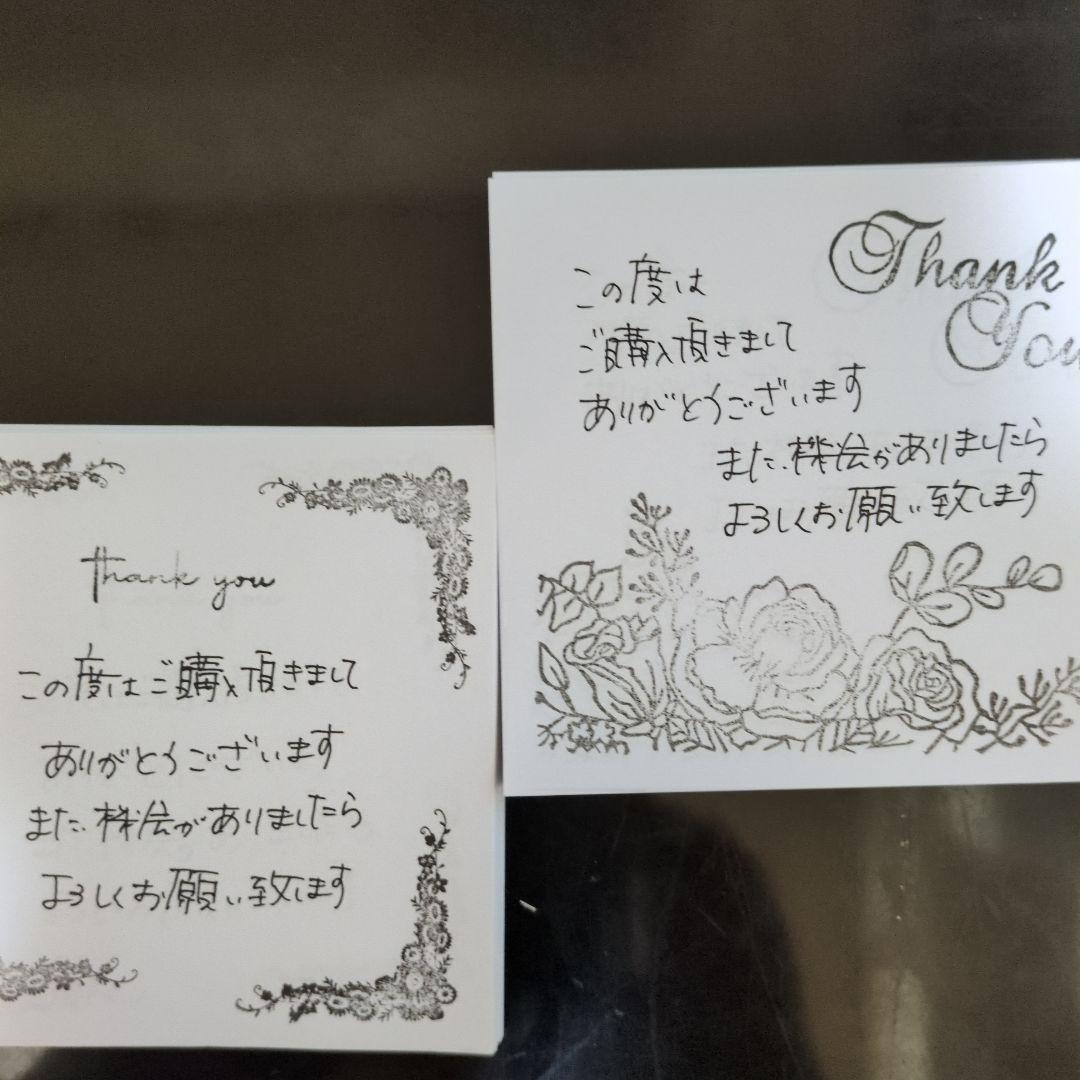 thank you
この度はご購入頂きまして
ありがとうございます
また機会がありましたら
よろしくお願い致します
Thank
You
この度は
ご購入頂きまして
ありがとうございます
また機会がありましたら
よろしくお願い致します